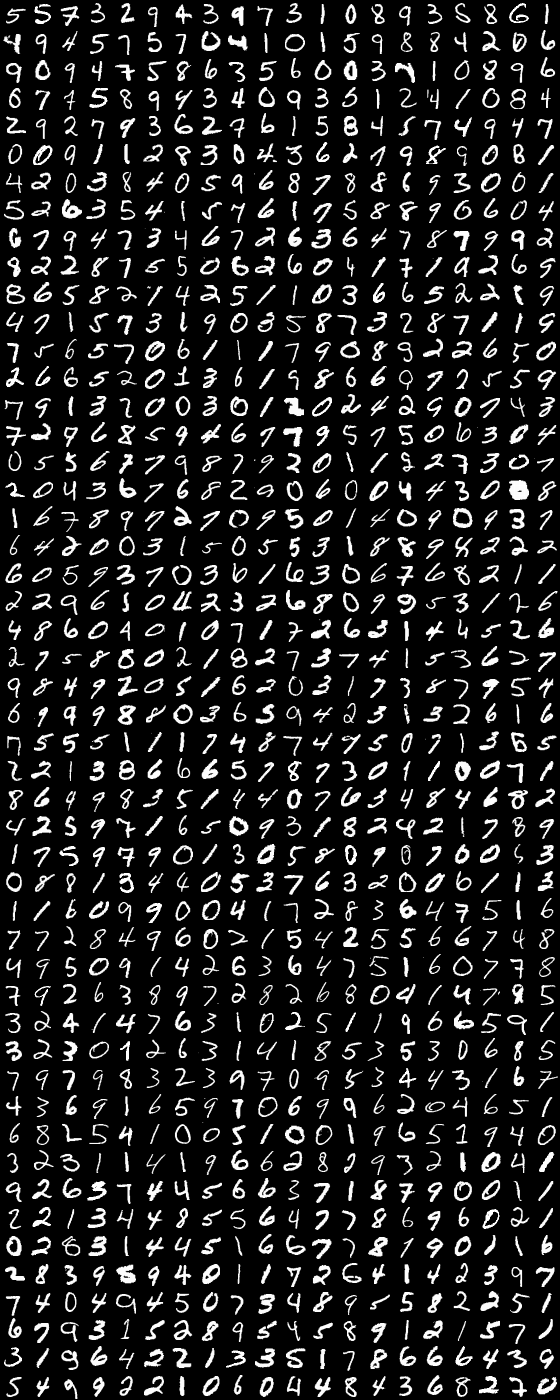 5 5 7 3 2 9 4 3 9 7 3 1 0 8 9 3 5 8 6 1
4 9 4 5 7 5 7 0 4 1 0 1 5 9 8 8 4 2 0 6
9 0 9 4 7 5 8 6 3 5 6 0 0 3 7 1 0 8 9 6
6 7 7 5 8 9 4 3 4 0 9 3 5 1 2 4 1 0 8 4
2 9 2 7 9 3 6 2 7 6 1 5 8 4 5 7 4 9 4 7
0 0 9 1 1 2 8 3 0 4 3 6 2 7 9 8 9 0 8 1
4 2 0 3 8 4 0 5 9 6 8 7 8 8 6 9 3 0 0 1
5 2 6 3 5 4 1 5 7 6 1 7 5 8 8 9 6 6 0 4
6 7 9 4 7 3 4 6 7 2 6 3 6 4 7 8 7 9 9 2
8 2 2 8 7 5 5 0 6 2 6 0 4 1 7 1 9 2 6 9
8 6 5 8 2 1 4 2 5 1 1 0 3 6 6 5 2 2 1 9
4 7 1 5 7 3 1 9 0 3 5 8 7 3 2 8 7 1 1 9
7 5 6 5 7 0 6 1 1 1 7 9 0 8 9 2 2 6 5 0
2 6 6 5 2 0 1 3 6 1 9 8 6 6 0 7 2 5 5 9
7 9 1 3 2 0 0 3 0 1 2 0 2 4 2 9 0 7 4 3
7 2 9 6 8 5 9 4 6 7 7 9 5 7 5 0 6 3 0 4
0 5 5 6 7 7 9 8 7 9 2 0 1 1 8 2 7 3 0 7
2 0 4 3 6 7 6 8 2 9 0 6 0 0 4 4 3 0 0 8
1 6 7 8 9 9 2 7 0 9 5 0 1 4 0 9 0 9 3 7
6 4 2 0 0 3 1 5 0 5 5 3 1 8 8 9 8 2 2 2
6 0 5 9 3 7 0 3 6 1 6 3 0 6 7 6 8 2 1 1
2 2 9 6 5 0 4 2 3 2 6 8 0 9 9 5 3 1 2 6
4 8 6 0 4 0 1 0 7 1 7 2 6 3 1 4 4 5 2 6
2 7 5 8 8 0 2 1 8 2 7 3 7 4 1 5 3 6 2 7
9 8 4 9 2 0 5 1 6 2 0 3 1 7 3 8 7 9 5 4
6 9 9 9 8 8 0 3 6 5 9 4 2 3 1 3 2 6 1 6
7 5 5 5 1 1 1 7 4 8 7 4 9 5 0 7 1 3 6 5
2 2 1 3 8 6 6 6 5 7 8 7 3 0 1 1 0 0 7 1
8 6 9 9 8 3 5 1 4 4 0 7 6 3 4 8 4 6 8 2
4 2 5 9 7 1 6 5 0 9 3 1 8 2 4 2 1 7 8 9
1 7 5 9 7 9 0 1 3 0 5 8 0 9 0 7 0 0 5 3
0 8 8 1 3 4 4 0 5 3 7 6 3 2 0 0 6 1 1 2
1 1 6 0 9 9 0 0 4 1 7 2 8 3 6 4 7 5 1 6
7 7 2 8 4 9 6 0 2 1 5 4 2 5 5 6 6 7 4 8
4 9 5 0 9 1 4 2 6 3 6 4 7 5 1 6 0 7 7 8
7 9 2 6 3 8 9 7 2 8 2 6 8 0 4 1 4 7 8 5
3 2 4 1 4 7 6 3 1 0 2 5 1 1 9 6 6 5 9 1
3 2 3 0 1 2 6 3 1 4 1 8 5 3 5 3 0 6 8 5
7 9 7 9 8 3 2 3 9 7 0 9 5 3 4 4 3 1 6 7
4 3 6 9 1 6 5 9 7 0 6 9 9 6 2 0 4 6 5 1
6 8 2 5 4 1 0 0 5 1 0 0 1 9 6 5 1 9 4 0
3 2 3 1 1 4 1 9 6 6 2 8 2 9 3 2 1 0 4 1
9 2 6 3 7 4 4 5 6 6 3 7 1 8 7 9 0 0 1 1
2 2 1 3 4 4 8 5 5 6 4 7 7 8 6 9 6 0 2 1
0 2 8 3 1 4 4 5 1 6 6 7 7 8 7 9 0 1 1 6
2 8 3 9 5 9 4 0 1 1 7 2 6 4 1 4 2 3 9 7
7 4 0 4 9 4 5 0 7 3 4 8 9 5 5 8 2 2 5 1
6 7 9 3 1 5 2 8 9 5 4 5 8 9 1 2 1 5 7 1
3 1 9 6 4 2 2 1 3 3 5 1 7 8 6 6 6 4 3 9
5 4 9 9 2 2 1 0 6 0 4 4 8 4 3 6 8 2 7 0